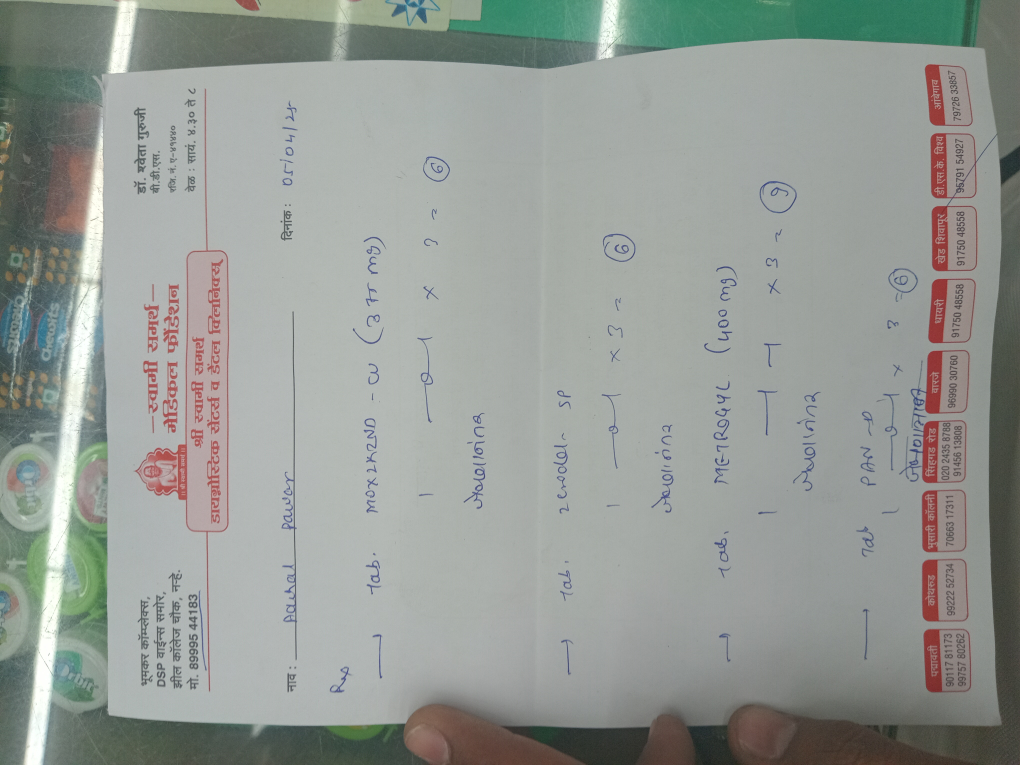 भूमकर कॉम्प्लेक्स,
DSP वाईन्स समोर,
झील कॉलेज चौक, नऱ्हे.
मो. 89995 44183
—स्वामी समर्थ—
मेडिकल फौंडेशन
श्री स्वामी समर्थ
डायग्नोस्टिक सेंटर्स व डेंटल क्लिनिक्स्
डॉ. श्वेता गुरुजी
बी.डी.एस.
रजि.नं. ए-४१४४०
वेळ : सायं. ४.३० ते ८
नाव : Aachal Pawar
दिनांक : 05/04/25
Rx
→ Tab. MOXIKIND - CV (375 mg)
1 — 0 — 1 × 3 = 6
जेवणानंतर
→ Tab. Zerodol - SP
1 — 0 — 1 × 3 = 6
जेवणानंतर
→ Tab. METROGYL (400 mg)
1 — 1 — 1 × 3 = 9
जेवणानंतर
→ Tab PAN-D
1 — 0 — 1 × 3 = 6
पद्मावती
90117 81173
99757 80262
कोथरुड
99222 52734
भूसारी कॉलनी
70663 17311
सिंहगड रोड
020 2435 8788
91456 13808
वारजे
96990 30760
धायरी
91750 48558
खेड शिवापूर
91750 48558
डी.एस.के. विश्व
95791 54927
आंबेगाव
79726 33857
orbit